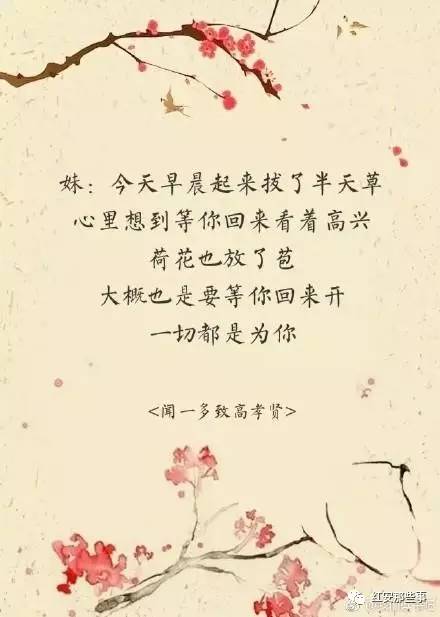 妹：今天早晨起来拔了半天草
心里想到等你回来看着高兴
荷花也放了苞
大概也是要等你回来开
一切都是为你
<闻一多致高孝贤>
红安那些事